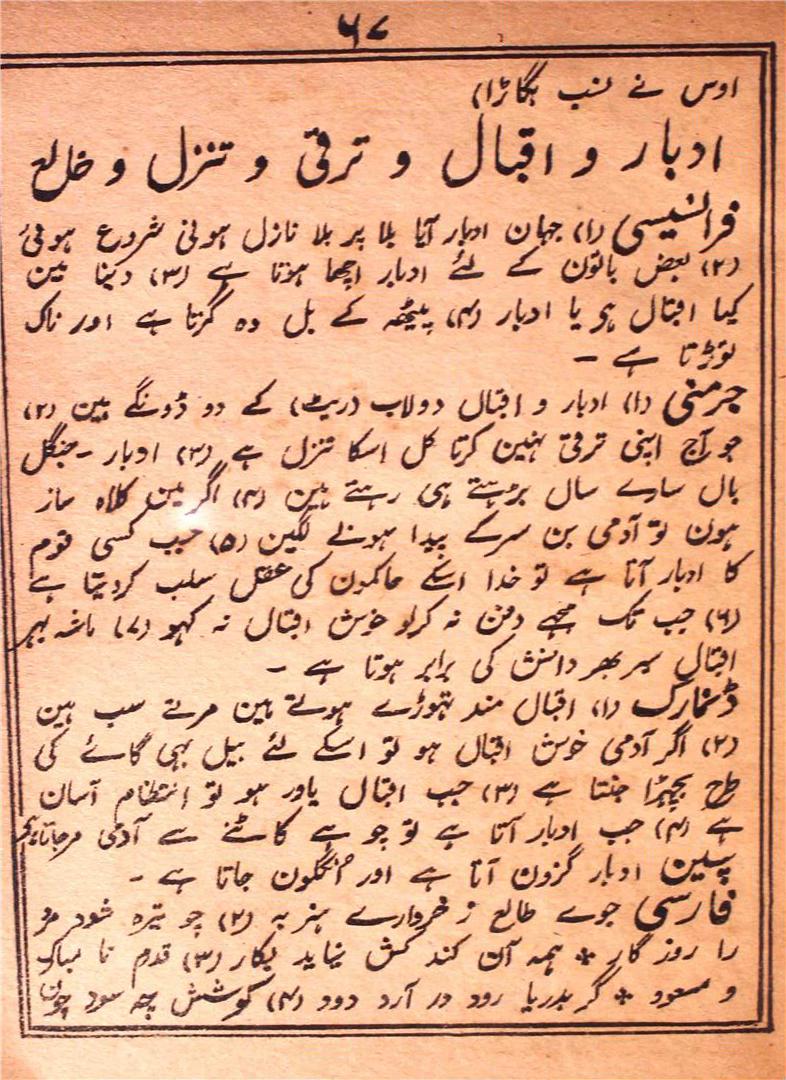 ۶۷
اوس نے سب بگاڑا)
ادبار و اقبال و ترقی و تنزل و طالع
فرانسیسی (۱) جہان ادبار آیا بلا پر بلا نازل ہونی شروع ہوئی
(۲) بعض باتون کے لئے ادبار اچھا ہوتا ہے (۳) دنیا مین
کیا اقبال ہو یا ادبار (۴) پیٹھہ کے بل وہ گرتا ہے اور ناک
توڑتا ہے -
جرمنی (۱) ادبار و اقبال دولاب (ریٹ) کے دو ڈونگے ہین (۲)
جو آج اپنی ترقی نہین کرتا کل اسکا تنزل ہے (۳) ادبار - جنگل
بال سارے سال بڑہتے ہی رہتے ہین (۴) اگر مین کلاہ ساز
ہون تو آدمی بن سرکے پیدا ہونے لگین (۵) جب کسی قوم
کا ادبار آتا ہے تو خدا اسکے حاکمون کی عقل سلب کردیتا ہے
(۶) جب تک مجہے دفن نہ کرلو خوش اقبال نہ کہو (۷) ماشہ بہر
اقبال سیر بھر دانش کی برابر ہوتا ہے -
ڈنمارک (۱) اقبال مند تہوڑے ہوتے ہین مرتے سب ہین
(۲) اگر آدمی خوش اقبال ہو تو اسکے لئے بیل بہی گائے کی
طرح بچہڑا جنتا ہے (۳) جب اقبال یاور ہو تو انتظام آسان
ہے (۴) جب ادبار آتا ہے تو چوہے کاٹنے سے آدمی مرجاتا ہے
سپین ادبار گزون آتا ہے اور اُنگلون جاتا ہے -
فارسی جوے طالع ز خروارے ہنر بہ (۲) چو تیرہ شود مرد
را روز گار * ہمہ آن کند کش نیاید بکار (۳) قدم نا مبارک
و مسعود * گر بدریا رود در آرد دود (۴) کوشش چہ سود چون